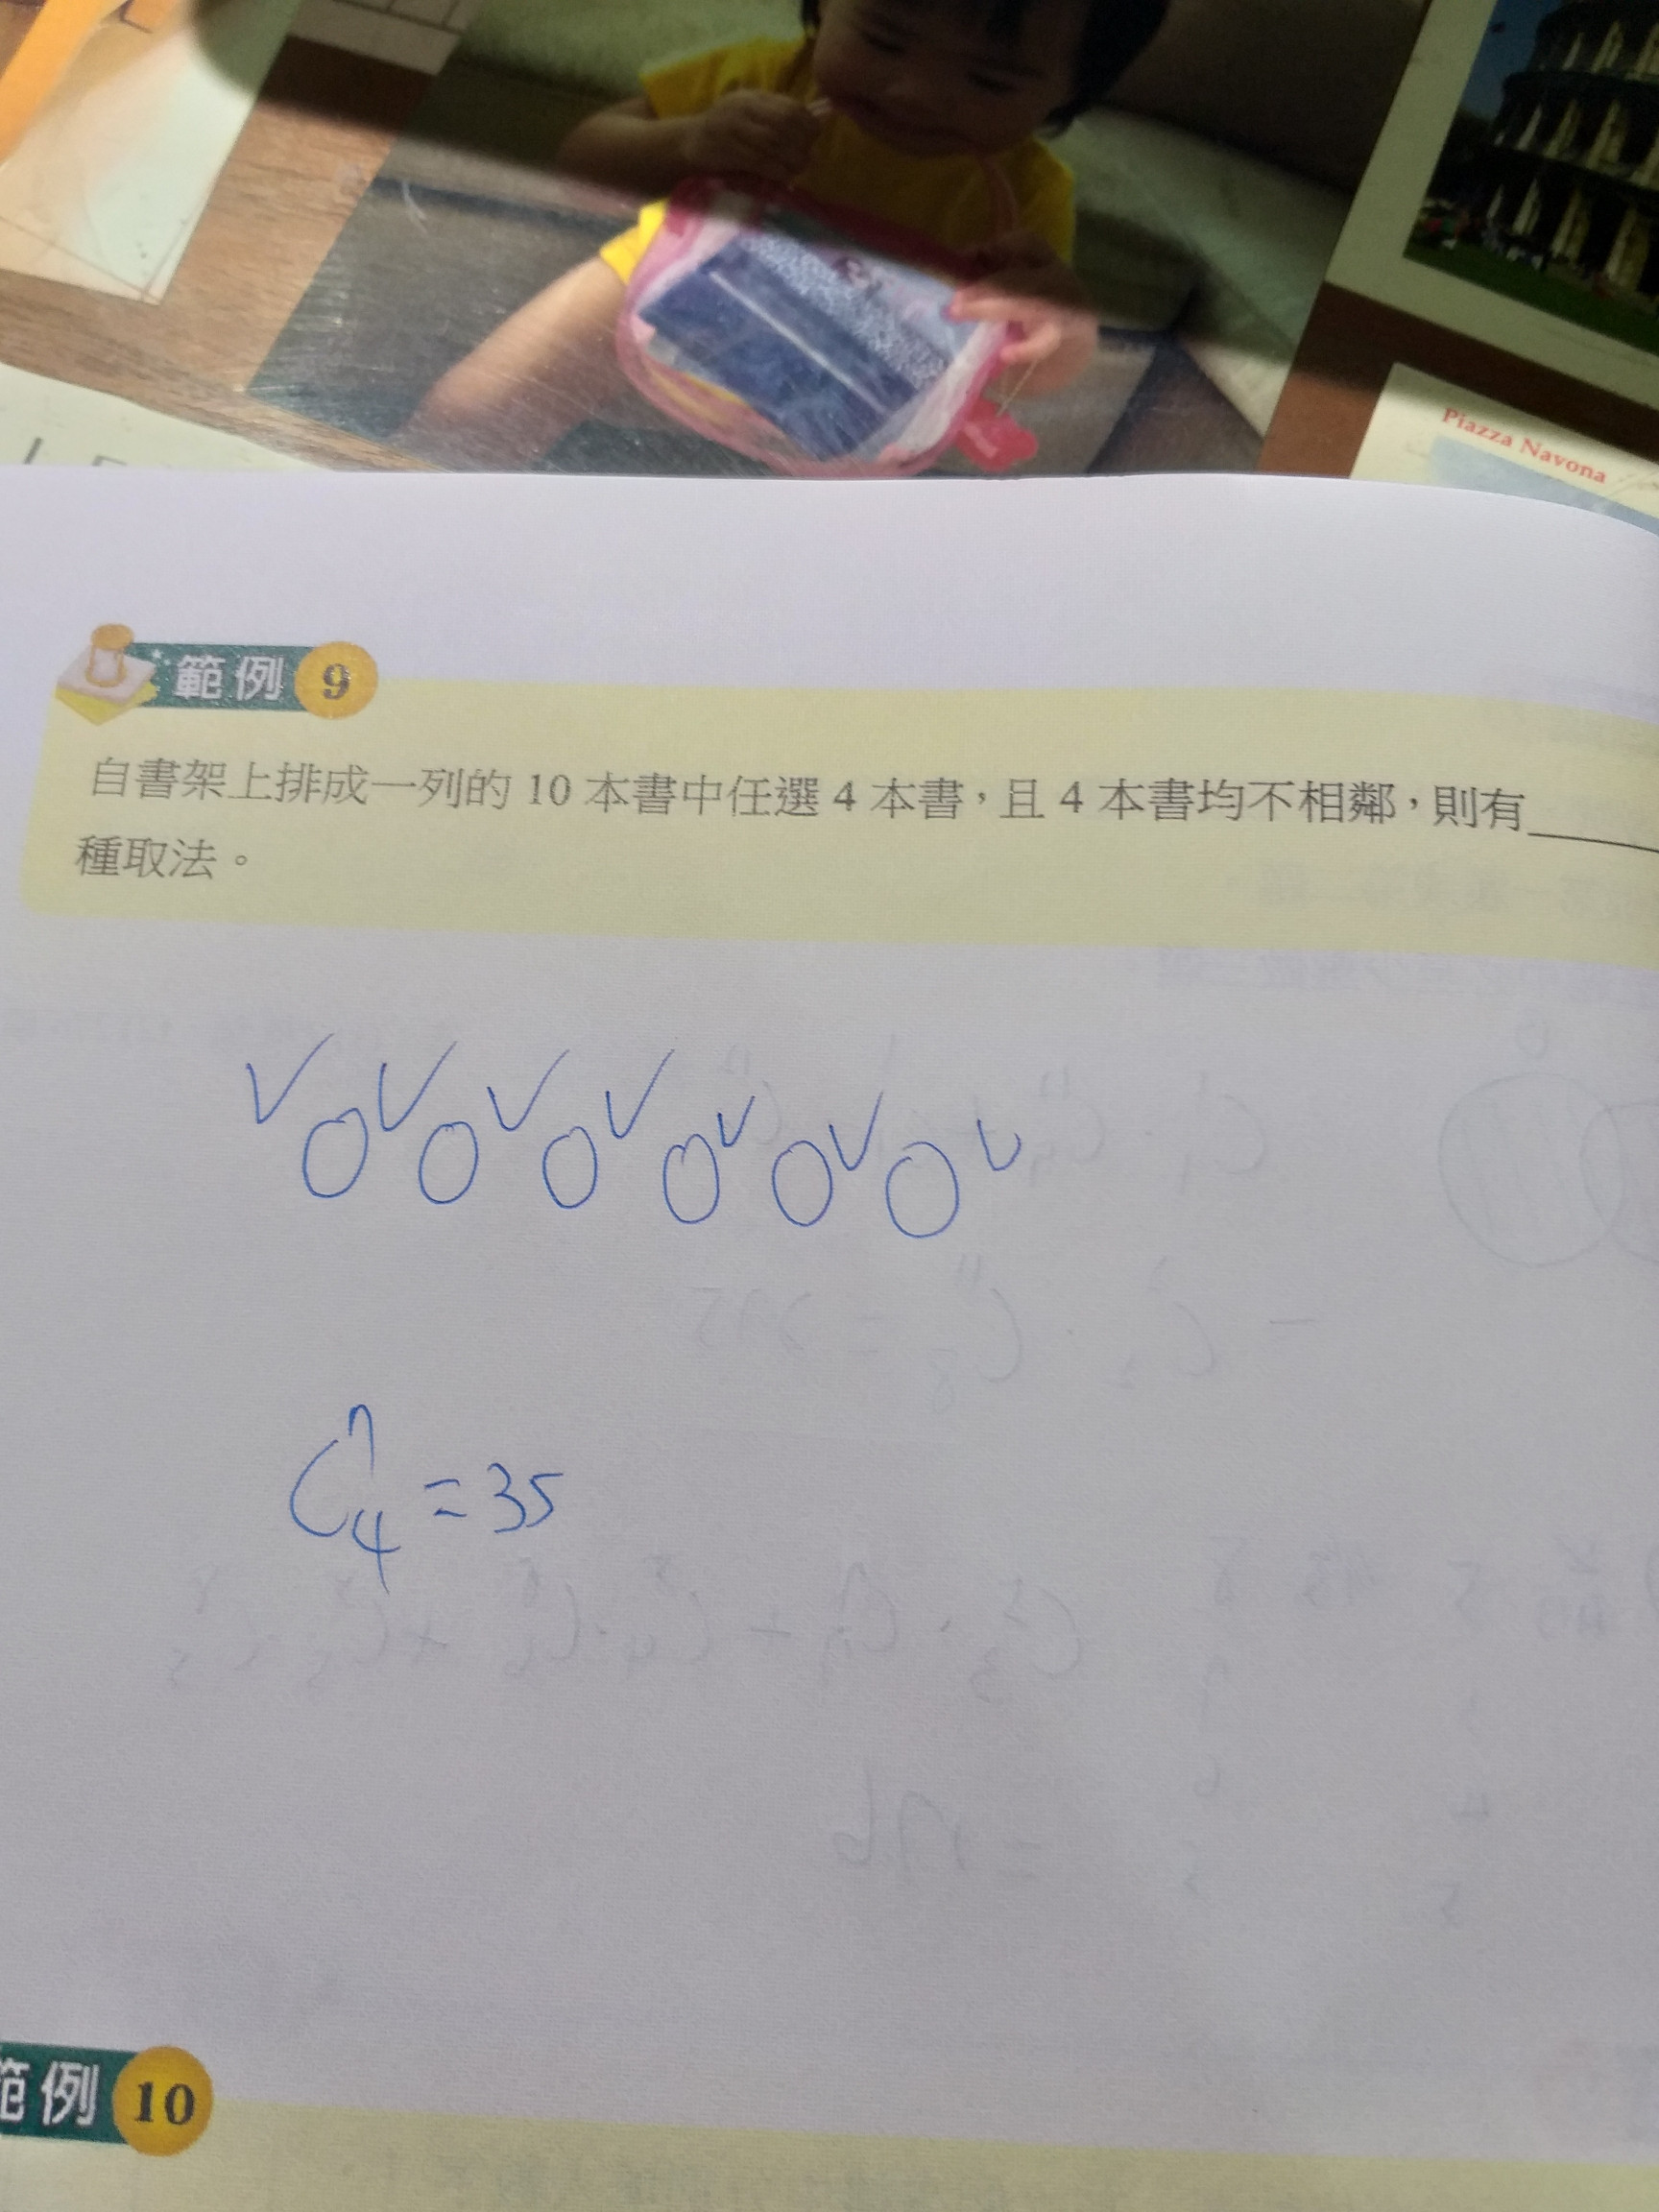 Piazza Navona
範例 9
自書架上排成一列的 10 本書中任選 4 本書，且 4 本書均不相鄰，則有______
種取法。
C⁷₄ = 35
範例 10